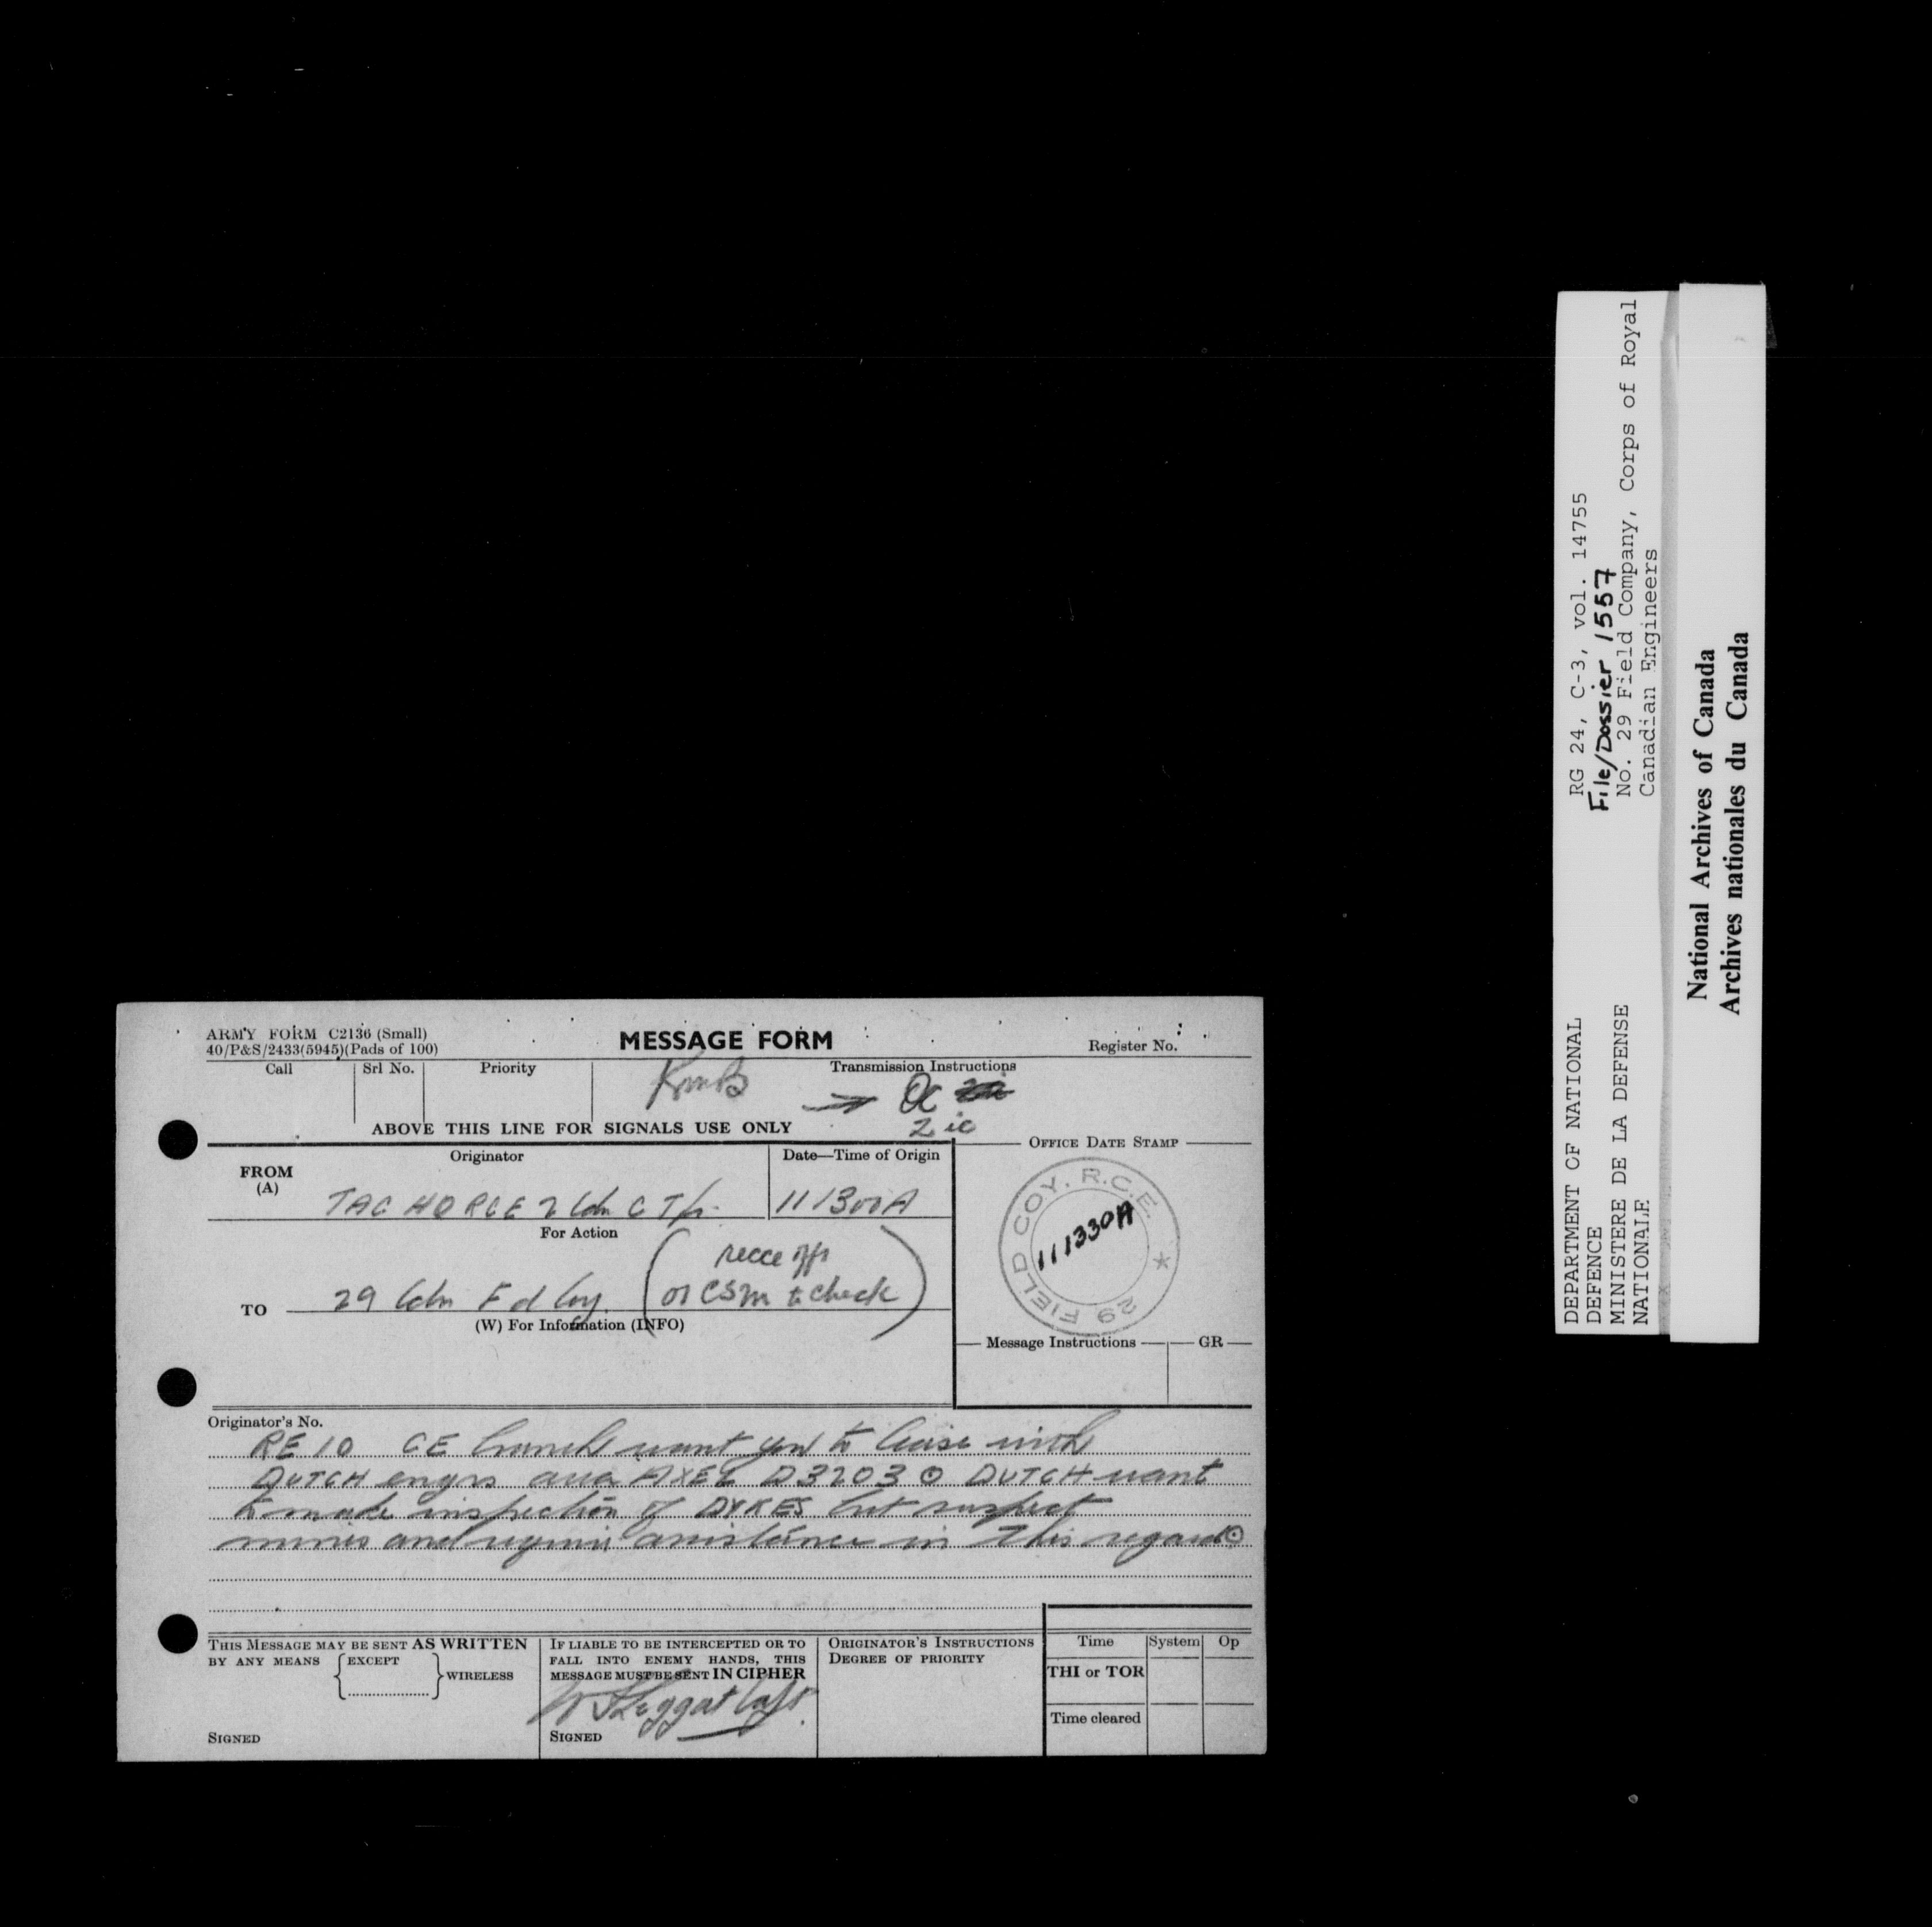 ARMY FORM C2136 (Small)
40/P&S/2433(5945)(Pads of 100)
MESSAGE FORM
Register No.
Call
Srl No.
Priority
Transmission Instructions
→ OC
2 ic
ABOVE THIS LINE FOR SIGNALS USE ONLY
FROM
(A)
Originator
Date—Time of Origin
OFFICE DATE STAMP
TAC HQ RCE 2 Cdn C Tps
111300A
29 FIELD COY. R.C.E. *
111330A
For Action
(recce offr
or CSM to check)
TO
29 Cdn Fd Coy.
(W) For Information (INFO)
Message Instructions
GR
Originator's No.
RE 10 CE branch want you to liaise with
DUTCH engrs area AXEL D3203 ⊙ DUTCH want
to make inspection of DYKES but suspect
mines and require assistance in this regard ⊙
THIS MESSAGE MAY BE SENT AS WRITTEN
BY ANY MEANS { EXCEPT } WIRELESS
SIGNED
IF LIABLE TO BE INTERCEPTED OR TO
FALL INTO ENEMY HANDS, THIS
MESSAGE MUST BE SENT IN CIPHER
Leggat Capt
SIGNED
ORIGINATOR'S INSTRUCTIONS
DEGREE OF PRIORITY
Time
System
Op
THI or TOR
Time cleared
RG 24, C-3, vol. 14755
File/Dossier 1557
No. 29 Field Company, Corps of Royal
Canadian Engineers
DEPARTMENT OF NATIONAL
DEFENCE
MINISTERE DE LA DEFENSE
NATIONALE
National Archives of Canada
Archives nationales du Canada